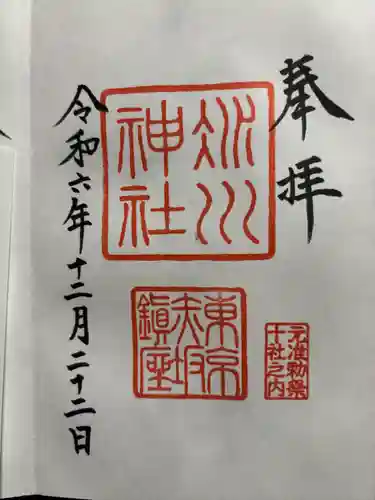 奉拝
氷川
神社
東京
赤坂
鎮座
元准勅祭
十社之内
令和六年十二月二十二日